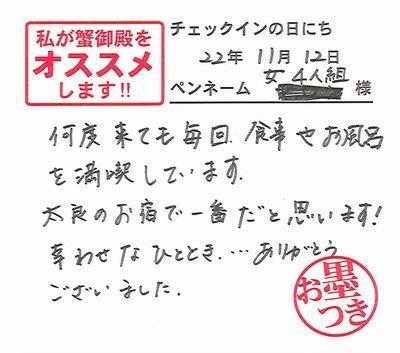 私が蟹御殿を
オススメ
します!!
チェックインの日にち
22年 11月 12日
ペンネーム 女4人組 様
何度来ても毎回、食事やお風呂
を満喫しています。
太良のお宿で一番だと思います!
幸わせなひととき、…ありがとう
ございました。
お墨つき